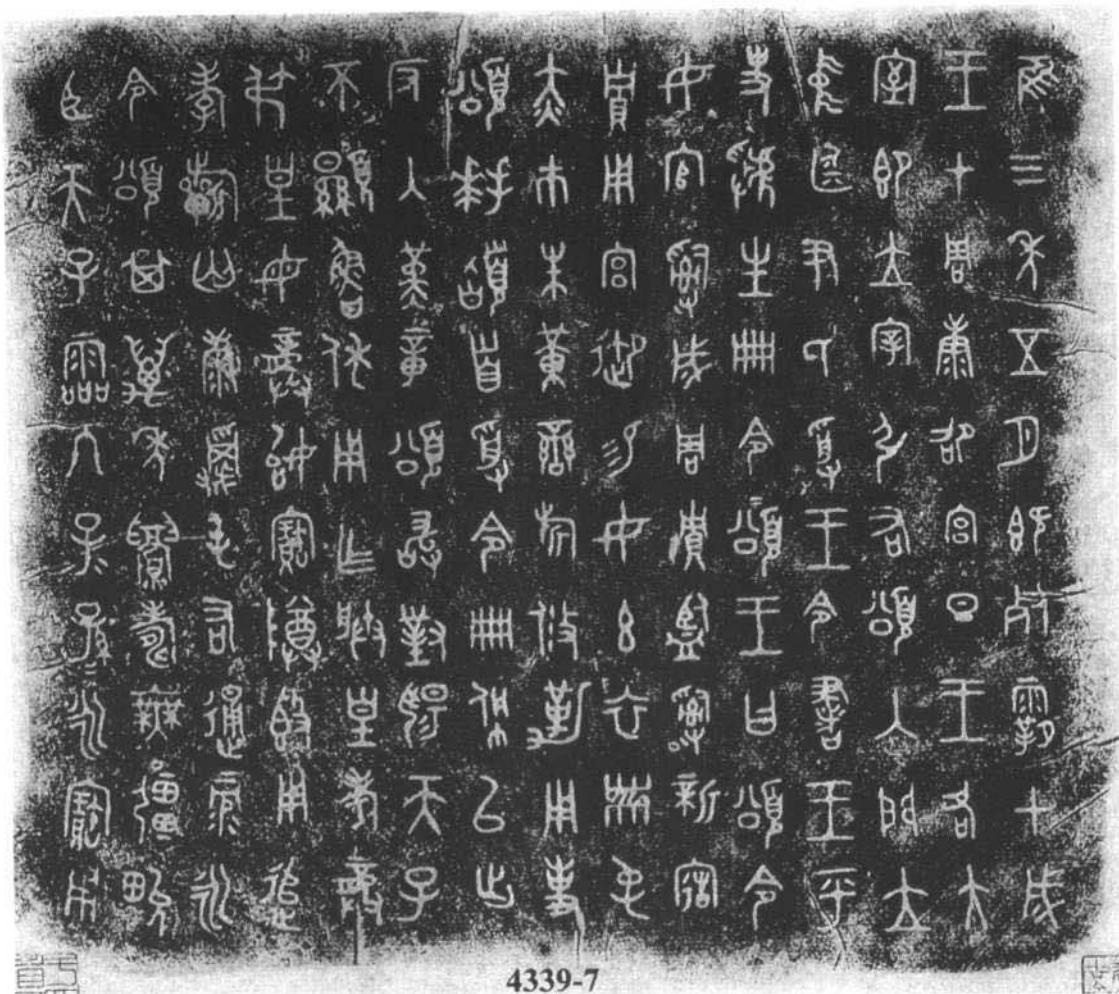 隹三年五月既死霸甲戌
王才周康卲宮旦王各大
室即立宰弘右頌入門立
中廷尹氏受王令書王乎
史虢生冊令頌王曰頌令
女官𤔲成周貯監𤔲新造
貯用宮御易女玄衣黹屯
赤巿朱黃䜌旂攸勒用事
頌拜𩒨首受令冊佩以出
反入堇章頌敢對揚天子
不顯魯休用乍朕皇考龏
弔皇母龏始寶尊簋用追
孝𣄨匄康𩁹屯右通彔永
令頌其萬年眉壽無疆畯
臣天子霝冬子=孫=永寶用
4339-7